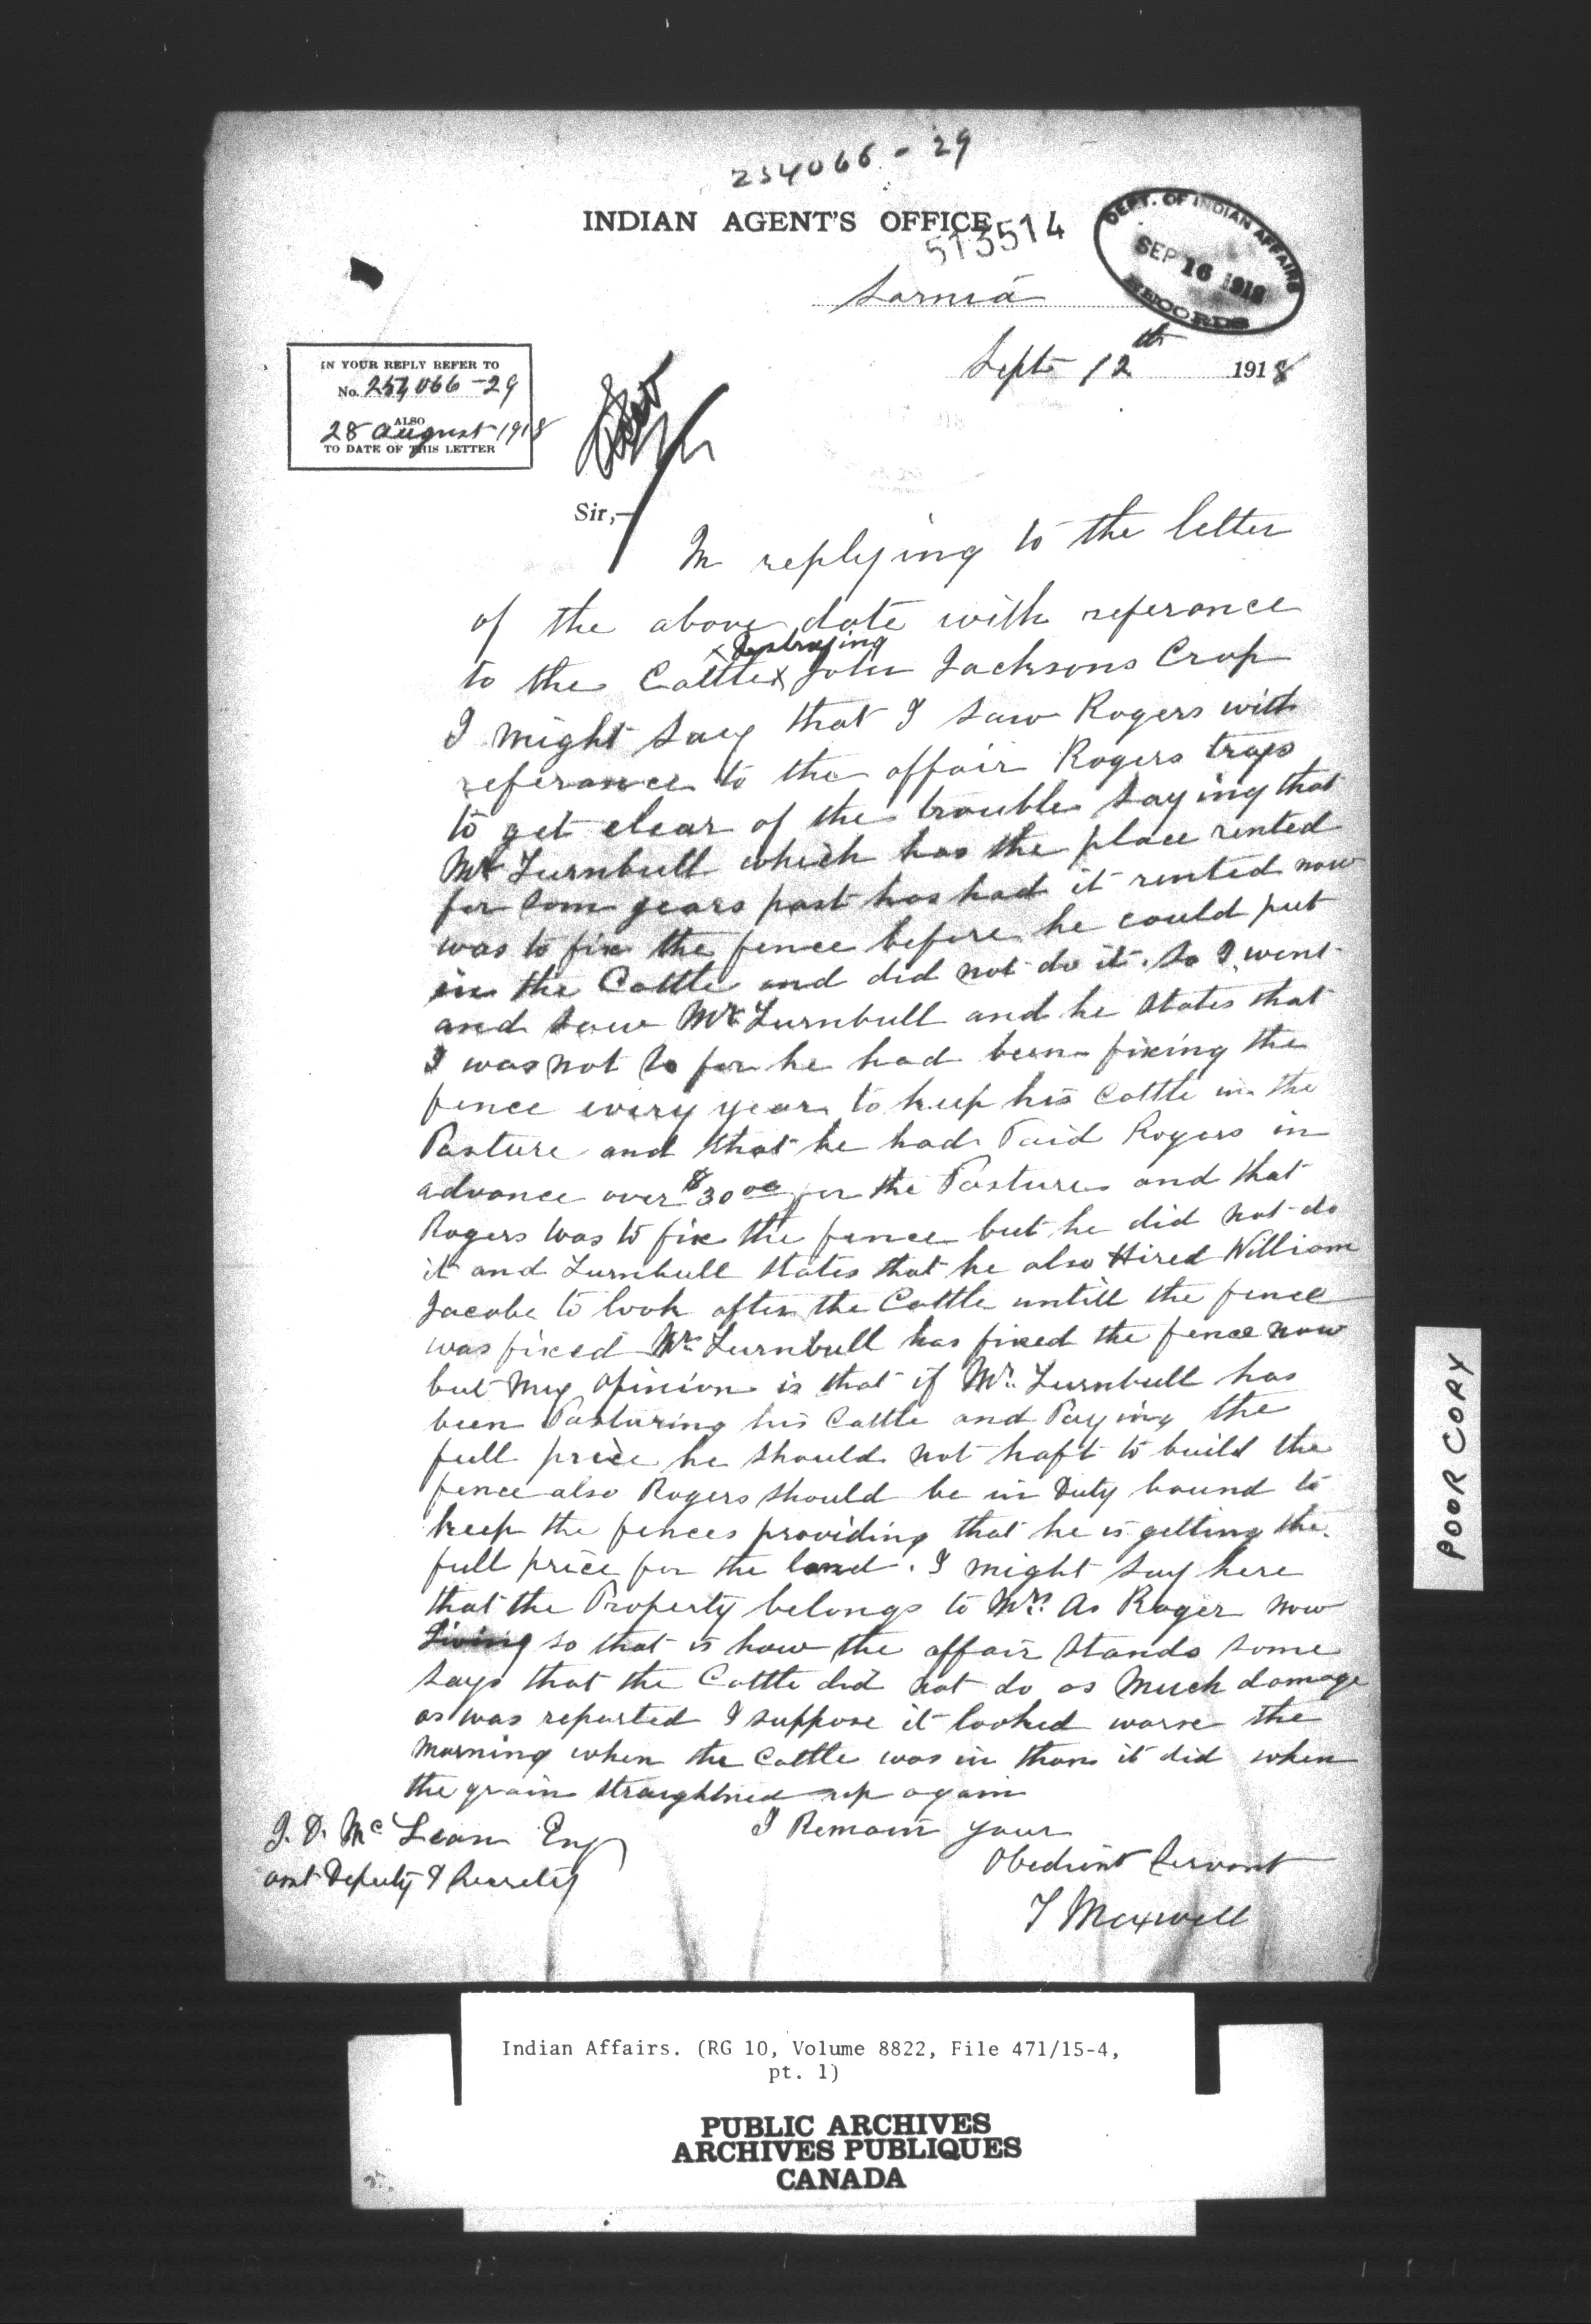 254066 - 29
INDIAN AGENT'S OFFICE
513514
DEPT. OF INDIAN AFFAIRS
SEP 16 1918
RECORDS
Sarnia
Sept 12th 1918
IN YOUR REPLY REFER TO
No. 254066-29
ALSO
28 August 1918
TO DATE OF THIS LETTER
Sir,—
In replying to the letter
of the above date with referance
x Destroying
to the Cattle x John Jacksons Crop
I might say that I saw Rogers with
referance to the affair Rogers trys
to get clear of the trouble saying that
Mr Turnbull which has the place rented
for som years past has had it rented now
was to fix the fence before he could put
in the Cattle and did not do it. So I went
and saw Mr Turnbull and he states that
I was not so for he had been fixing the
fence every year to keep his Cattle in the
Pasture and that he had Paid Rogers in
advance over $30 00 for the Pasture and that
Rogers was to fix the fence but he did not do
it and Turnbull states that he also Hired William
Jacobs to look after the Cattle untill the fence
was fixed Mr Turnbull has fixed the fence now
but my Opinion is that if Mr. Turnbull has
been Pasturing his Cattle and Paying the
full price he should not haft to build the
fence also Rogers should be in Duty bound to
keep the fences providing that he is getting the
full price for the land. I might say here
that the Property belongs to Mrs As Roger now
living so that is how the affair stands some
says that the Cattle did not do as much damage
as was reported I suppose it looked worse the
morning when the Cattle was in than it did when
the grain straightned up again
I Remain your
Obedient Servant
T Maxwell
J. D. McLean Esq
asst Deputy & Secretery
POOR COPY
Indian Affairs. (RG 10, Volume 8822, File 471/15-4,
pt. 1)
PUBLIC ARCHIVES
ARCHIVES PUBLIQUES
CANADA